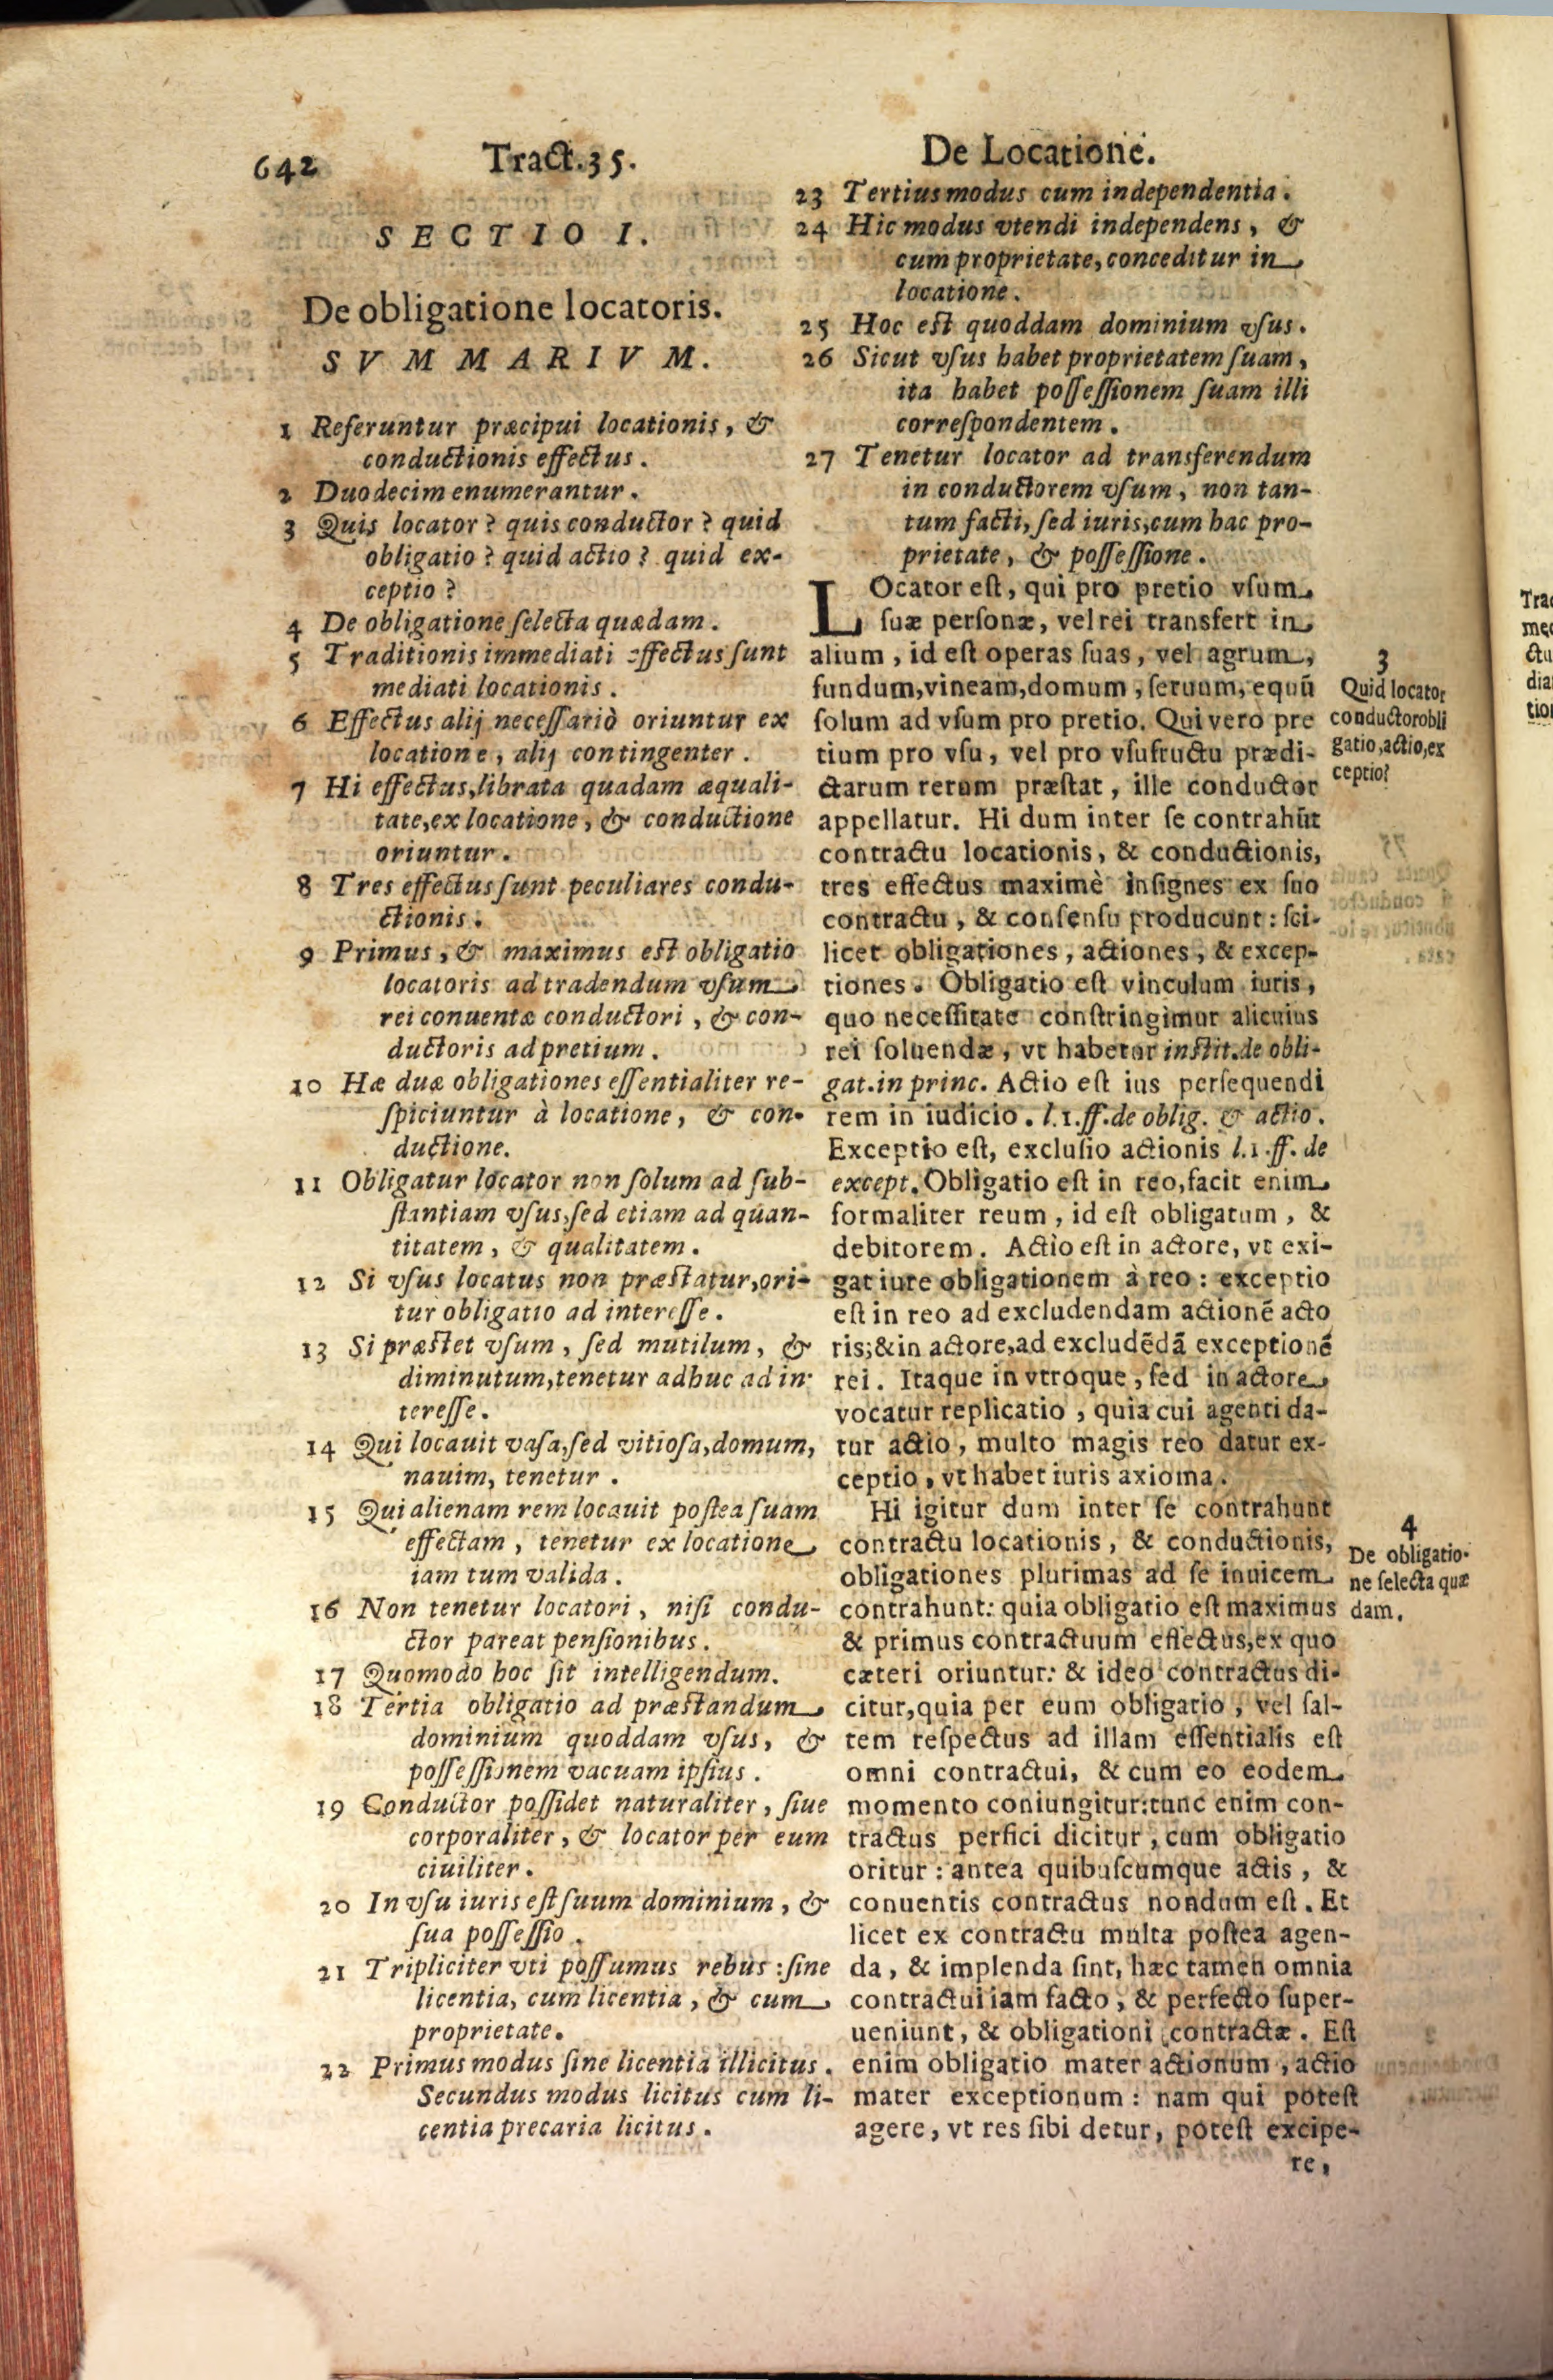 642
Tract.35.
De Locatione.
SECTIO I.
De obligatione locatoris.
SVMMARIVM.
1 Referuntur præcipui locationis, &
conductionis effectus.
2 Duodecim enumerantur.
3 Quis locator? quis conductor? quid
obligatio? quid actio? quid ex-
ceptio?
4 De obligatione ſelecta quædam.
5 Traditionis immediati effectus ſunt
mediati locationis.
6 Effectus alij neceſſariò oriuntur ex
locatione, alij contingenter.
7 Hi effectus, librata quadam æquali-
tate, ex locatione, & conductione
oriuntur.
8 Tres effectus ſunt peculiares condu-
ctionis.
9 Primus, & maximus est obligatio
locatoris ad tradendum vſum
rei conuentæ conductori, & con-
ductoris ad pretium.
10 Hæ duæ obligationes eſſentialiter re-
ſpiciuntur à locatione, & con-
ductione.
11 Obligatur locator non ſolum ad ſub-
ſtantiam vſus, ſed etiam ad quan-
titatem, & qualitatem.
12 Si vſus locatus non præſtatur, ori-
tur obligatio ad intereſſe.
13 Si præſtet vſum, ſed mutilum, &
diminutum, tenetur adhuc ad in-
tereſſe.
14 Qui locauit vaſa, ſed vitioſa, domum,
nauim, tenetur.
15 Qui alienam rem locauit poſtea ſuam
effectam, tenetur ex locatione
iam tum valida.
16 Non tenetur locatori, niſi condu-
ctor pareat penſionibus.
17 Quomodo hoc ſit intelligendum.
18 Tertia obligatio ad præſtandum
dominium quoddam vſus, &
poſſeſſionem vacuam ipſius.
19 Conductor poſſidet naturaliter, ſiue
corporaliter, & locator per eum
ciuiliter.
20 In vſu iuris eſt ſuum dominium, &
ſua poſſeſſio.
21 Tripliciter vti poſſumus rebus: ſine
licentia, cum licentia, & cum
proprietate.
22 Primus modus ſine licentia illicitus.
Secundus modus licitus cum li-
centia precaria licitus.
23 Tertius modus cum independentia.
24 Hic modus vtendi independens, &
cum proprietate, conceditur in
locatione.
25 Hoc eſt quoddam dominium vſus.
26 Sicut vſus habet proprietatem ſuam,
ita habet poſſeſſionem ſuam illi
correſpondentem.
27 Tenetur locator ad transferendum
in conductorem vſum, non tan-
tum facti, ſed iuris, cum hac pro-
prietate, & poſſeſſione.
LOcator eſt, qui pro pretio vſum
ſuæ perſonæ, vel rei transfert in
alium, id eſt operas ſuas, vel agrum,
fundum, vineam, domum, ſeruum, equũ
ſolum ad vſum pro pretio. Qui vero pre
tium pro vſu, vel pro vſufructu prædi-
ctarum rerum præſtat, ille conductor
appellatur. Hi dum inter ſe contrahũt
contractu locationis, & conductionis,
tres effectus maximè inſignes ex ſuo
contractu, & conſenſu producunt: ſci-
licet obligationes, actiones, & excep-
tiones. Obligatio eſt vinculum iuris,
quo neceſſitate conſtringimur alicuius
rei ſoluendæ, vt habetur inſtit. de obli-
gat. in princ. Actio eſt ius perſequendi
rem in iudicio. l.1.ff. de oblig. & actio.
Exceptio eſt, excluſio actionis l.1.ff. de
except. Obligatio eſt in reo, facit enim
formaliter reum, id eſt obligatum, &
debitorem. Actio eſt in actore, vt exi-
gat iure obligationem à reo: exceptio
eſt in reo ad excludendam actionẽ acto
ris; & in actore, ad excludẽdã exceptionẽ
rei. Itaque in vtroque, ſed in actore
vocatur replicatio, quia cui agenti da-
tur actio, multo magis reo datur ex-
ceptio, vt habet iuris axioma.
Hi igitur dum inter ſe contrahunt
contractu locationis, & conductionis,
obligationes plurimas ad ſe inuicem
contrahunt: quia obligatio eſt maximus
& primus contractuum effectus, ex quo
cæteri oriuntur: & ideo contractus di-
citur, quia per eum obligatio, vel ſal-
tem reſpectus ad illam eſſentialis eſt
omni contractui, & cum eo eodem
momento coniungitur: tunc enim con-
tractus perfici dicitur, cum obligatio
oritur: antea quibuſcumque actis, &
conuentis contractus nondum eſt. Et
licet ex contractu multa poſtea agen-
da, & implenda ſint, hæc tamen omnia
contractui iam facto, & perfecto ſuper-
ueniunt, & obligationi contractæ. Eſt
enim obligatio mater actionum, actio
mater exceptionum: nam qui poteſt
agere, vt res ſibi detur, poteſt excipe-
re,
3
Quid locator
conductor obli
gatio, actio, ex
ceptio?
4
De obligatio-
ne ſelecta quæ
dam.